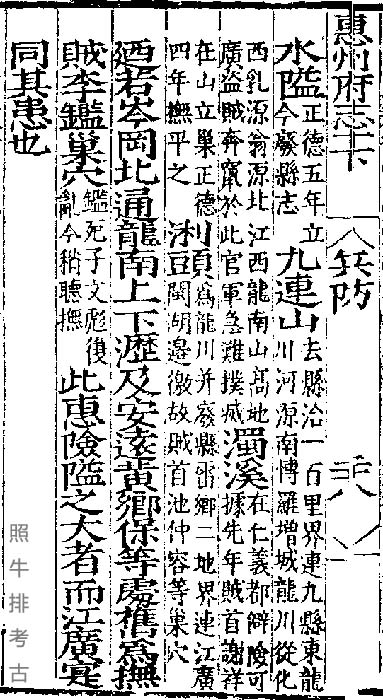 惠州府志卞　八兵防　二八
水隘正德五年立今廢縣志九連山去縣治一百里界連九縣東龍川河源南博羅增城龍川從化
西乳源翁源北江西龍南山髙地廣盗賊奔竄於此官軍急難撲滅濁溪在仁義都僻險可據先年賊首謝祥
在山立巢正德四年撫平之浰頭爲龍川并廢縣雷鄉二地界連江廣閩湖邊徼故賊首池仲容等巢穴
廼若岑岡北通龍南上下瀝及安遠黄鄉保等處舊爲撫
賊李鑑巢穴鑑死子文彪復亂今稍聽撫此惠險隘之大者而江廣寔
同其患也
照牛排考古